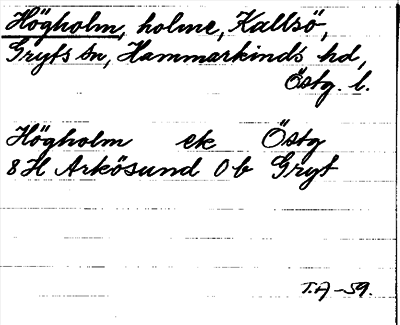 Högholm, holme, Kallsö,
Gryts sn, Hammarkinds hd,
Östg. l.
Högholm ek Östg
8 H Arkösund 0 b Gryt
T.A -59.